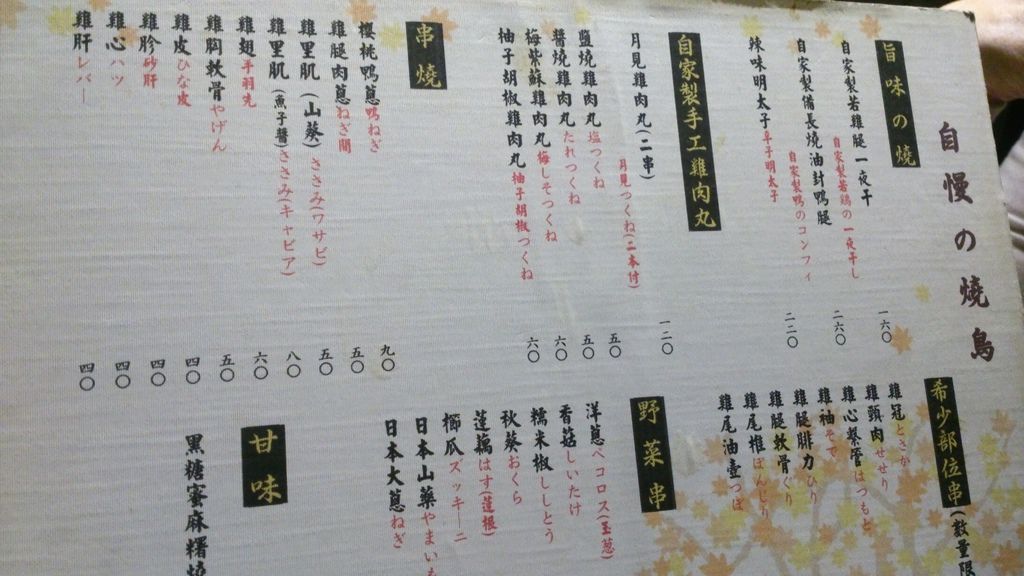 自慢の燒鳥
旨味の燒
自家製若雞腿一夜干 自家製若鶏の一夜干し 一六〇
自家製備長燒油封鴨腿 自家製鴨のコンフィ 二六〇
辣味明太子 辛子明太子 二二〇
自家製手工雞肉丸
月見雞肉丸(二串) 月見つくね(二本付) 一二〇
鹽燒雞肉丸 塩つくね 五〇
醬燒雞肉丸 たれつくね 五〇
梅紫蘇雞肉丸 梅しそつくね 六〇
柚子胡椒雞肉丸 柚子胡椒つくね 六〇
串燒
櫻桃鴨蔥 鴨ねぎ 九〇
雞腿肉蔥 ねぎ間 五〇
雞里肌(山葵) ささみ(ワサビ) 五〇
雞里肌(魚子醬) ささみ(キャビア) 八〇
雞翅 手羽先 六〇
雞胸軟骨 やげん 五〇
雞皮 ひな皮 四〇
雞胗 砂肝 四〇
雞心 ハツ 四〇
雞肝 レバー 四〇
希少部位串(數量限
雞冠 とさか
雞頸肉 せせり
雞心繫管 はつもと
雞袖 そで
雞腿腓力 ひり
雞腿軟骨 ぐり
雞尾椎 ぼんじり
雞尾油壺 つぼ
野菜串
洋蔥 ペコロス(玉葱)
香菇 しいたけ
糯米椒 ししとう
秋葵 おくら
蓮藕 はす(蓮根)
櫛瓜 ズッキーニ
日本山藥 やまいも
日本大蔥 ねぎ
甘味
黑糖蜜麻糬燒